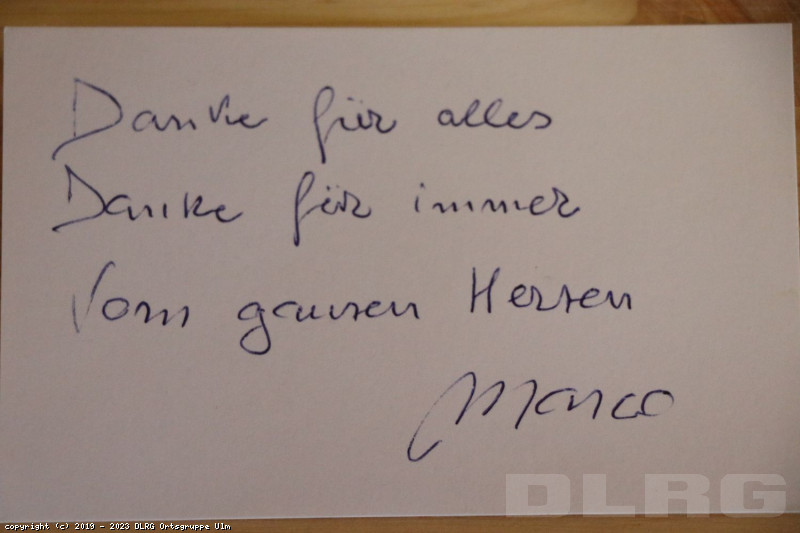 Danke für alles
Danke für immer
Vom ganzen Herzen
Marco
DLRG
copyright (c) 2019 - 2023 DLRG Ortsgruppe Ulm